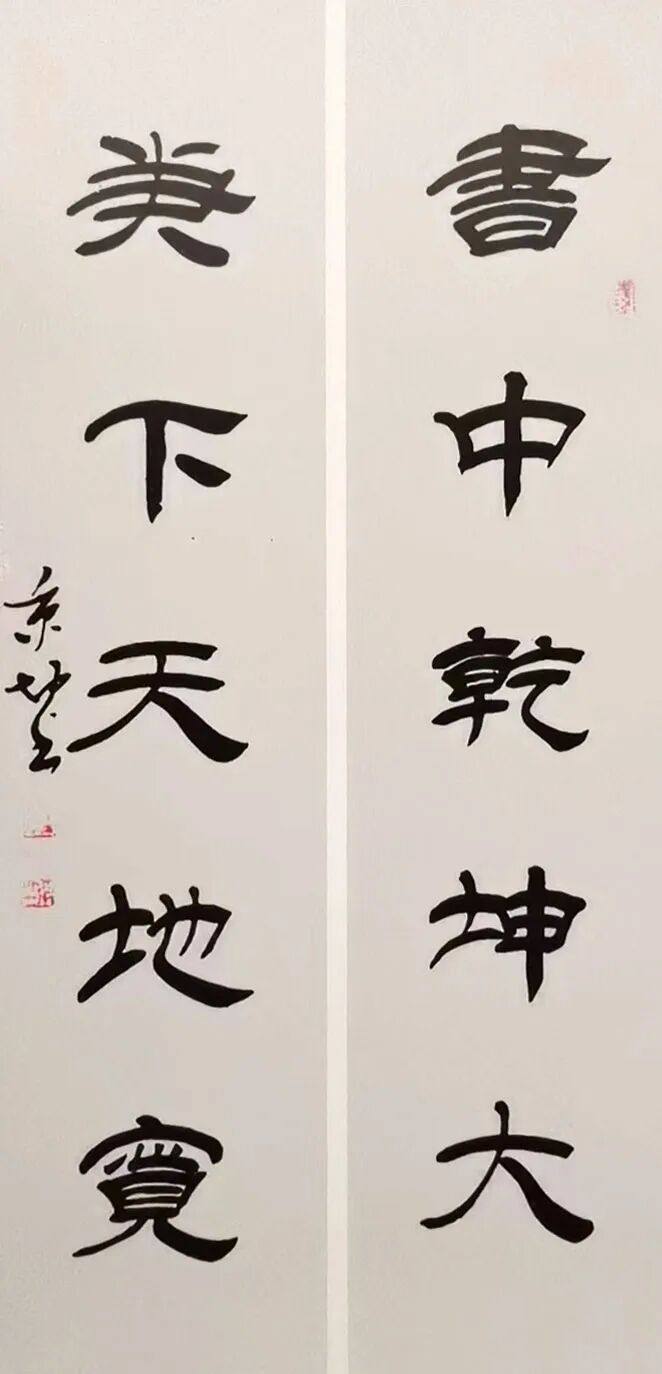 書中乾坤大
下天地寬